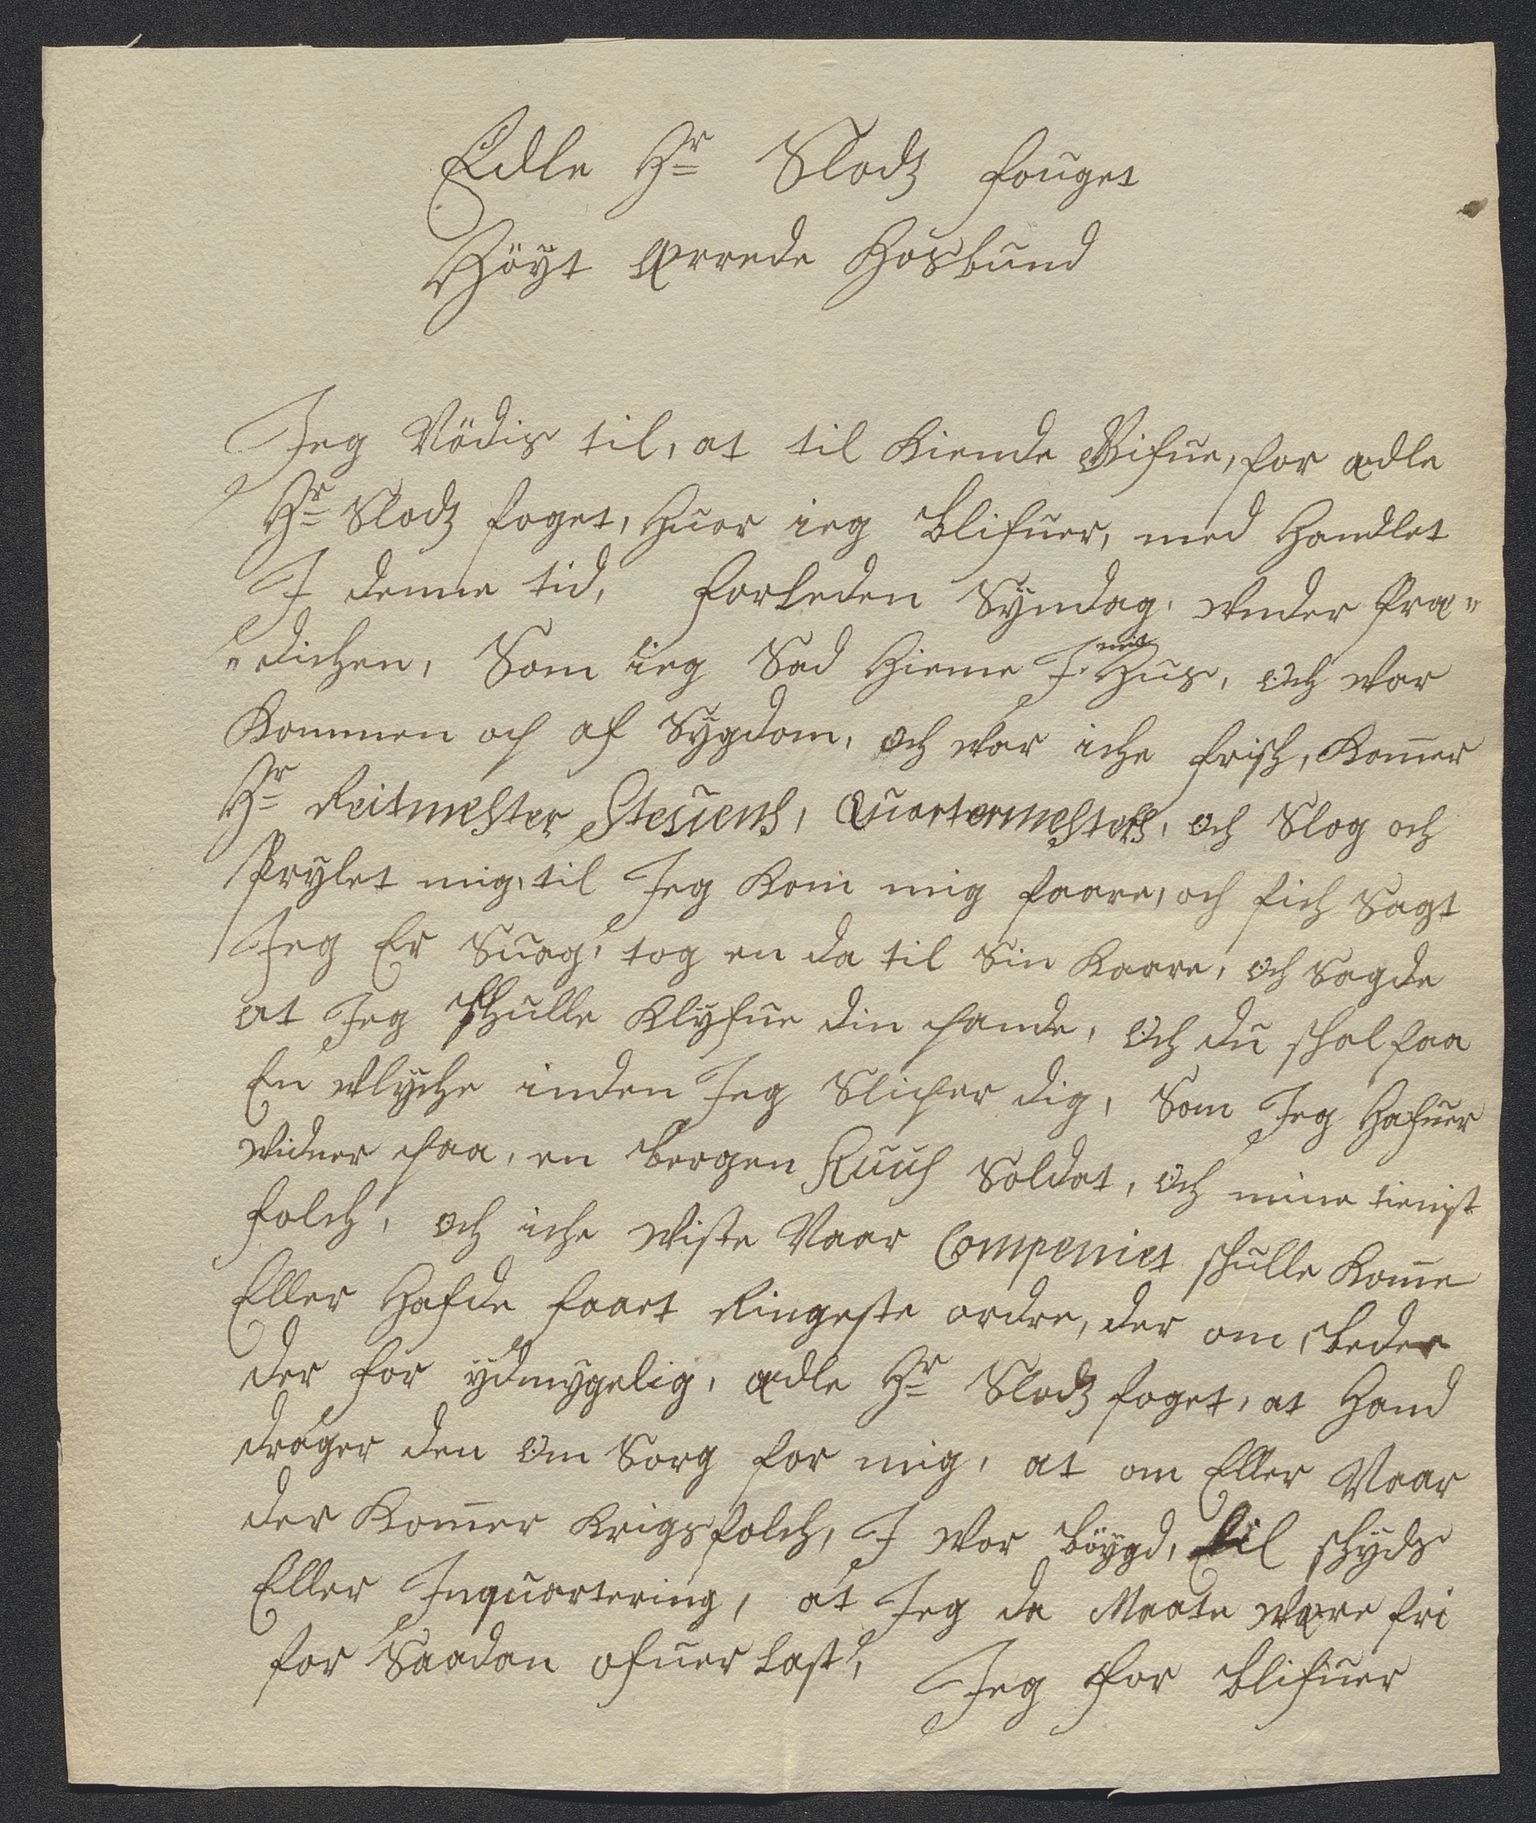 Edle Hr Slodz fouget
Höyt Ærrede Hosbund
Jeg Nödis til, at til Kiende Gifue, for ædle
Hr Slodz foget, Huor ieg blifuer, med Handlet
J denne tid, forleden Syndag, under Præ„
„dichen, Som ieg Sad Hieme J mit Hus, och war
Kommen op af Sygdom, och war iche frisk, Komer
Hr Reitmester Steuens, Quartermesters, och Slog och
Prylet mig, til Jeg Kom mig faare, och fich Sagt
Jeg Er Suag, tog en da til Sin Kaare, och Sagde
at Jeg skulle Klyfue din pande, och du skal faa
En Ulyche inden Jeg Sliper dig, Som Jeg Hafuer
widner paa, en bergen Soldat, och mine tienist
folch, och iche wiste Naar Compeniet skulle Kome
Eller Hafde faaet Ringeste ordre, der om, beder
der for ydmygelig, ædle Hr Slodz foget, at Hand
drager den Om Sorg for mig, at om Eller Naar
der Komer Krigsfolch, J wor böygd, til skyds
Eller Inquartering, at Jeg da Maate være fri
for Saadan ofuer last,
Jeg for blifuer